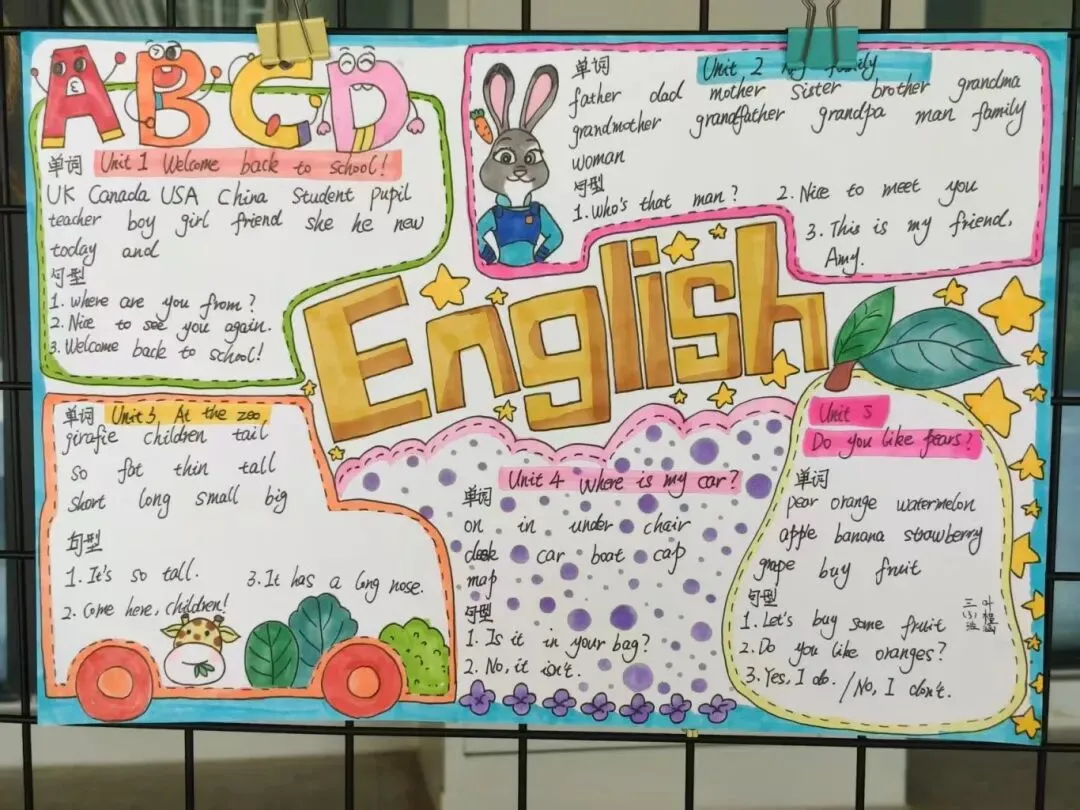 ABCD
单词 Unit 1 Welcome back to school!
UK Canada USA China Student pupil
teacher boy girl friend she he new
today and
句型
1. where are you from?
2. Nice to see you again.
3. Welcome back to school!
单词 Unit 2 My family
father dad mother sister brother grandma
grandmother grandfather grandpa man family
woman
句型
1. Who's that man? 2. Nice to meet you
3. This is my friend,
Amy.
English
单词 Unit 3 At the zoo
girafie children tail
so fat thin tall
short long small big
句型
1. It's so tall. 3. It has a long nose.
2. Come here, children!
Unit 4 Where is my car?
单词
on in under chair
desk car boat cap
map
句型
1. Is it in your bag?
2. No, it isn't.
Unit 5
Do you like pears?
单词
pear orange watermelon
apple banana strawberry
grape buy fruit
句型
1. Let's buy some fruit
2. Do you like oranges?
3. Yes, I do. /No, I don't.
三(3)班